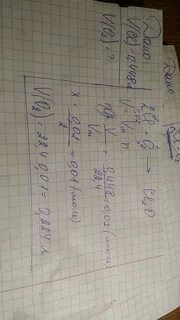 Дано:
V(Cl₂) = 0,448 л
V(O₂) = ?
2Cl₂ + O₂ → Cl₂O
V/Vm = 0,448/22,4 = 0,02 (моль)
x = 0,02/2 = 0,01 (моль)
V(O₂) = 22,4 · 0,01 = 0,224 л